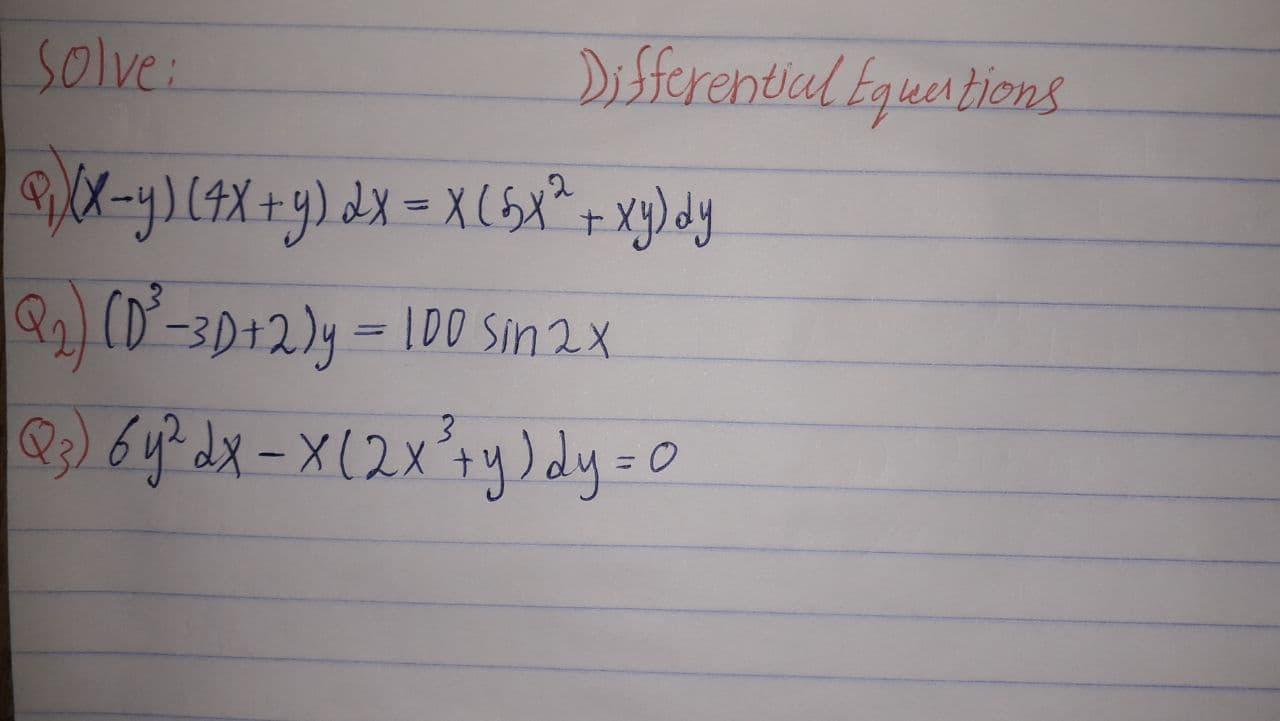 Solve: Differential Equations
Q1) (x-y)(4x+y) dx = x(5x² + xy) dy
Q2) (D³-3D+2)y = 100 sin 2x
Q3) 6y² dx - x(2x³+y) dy = 0